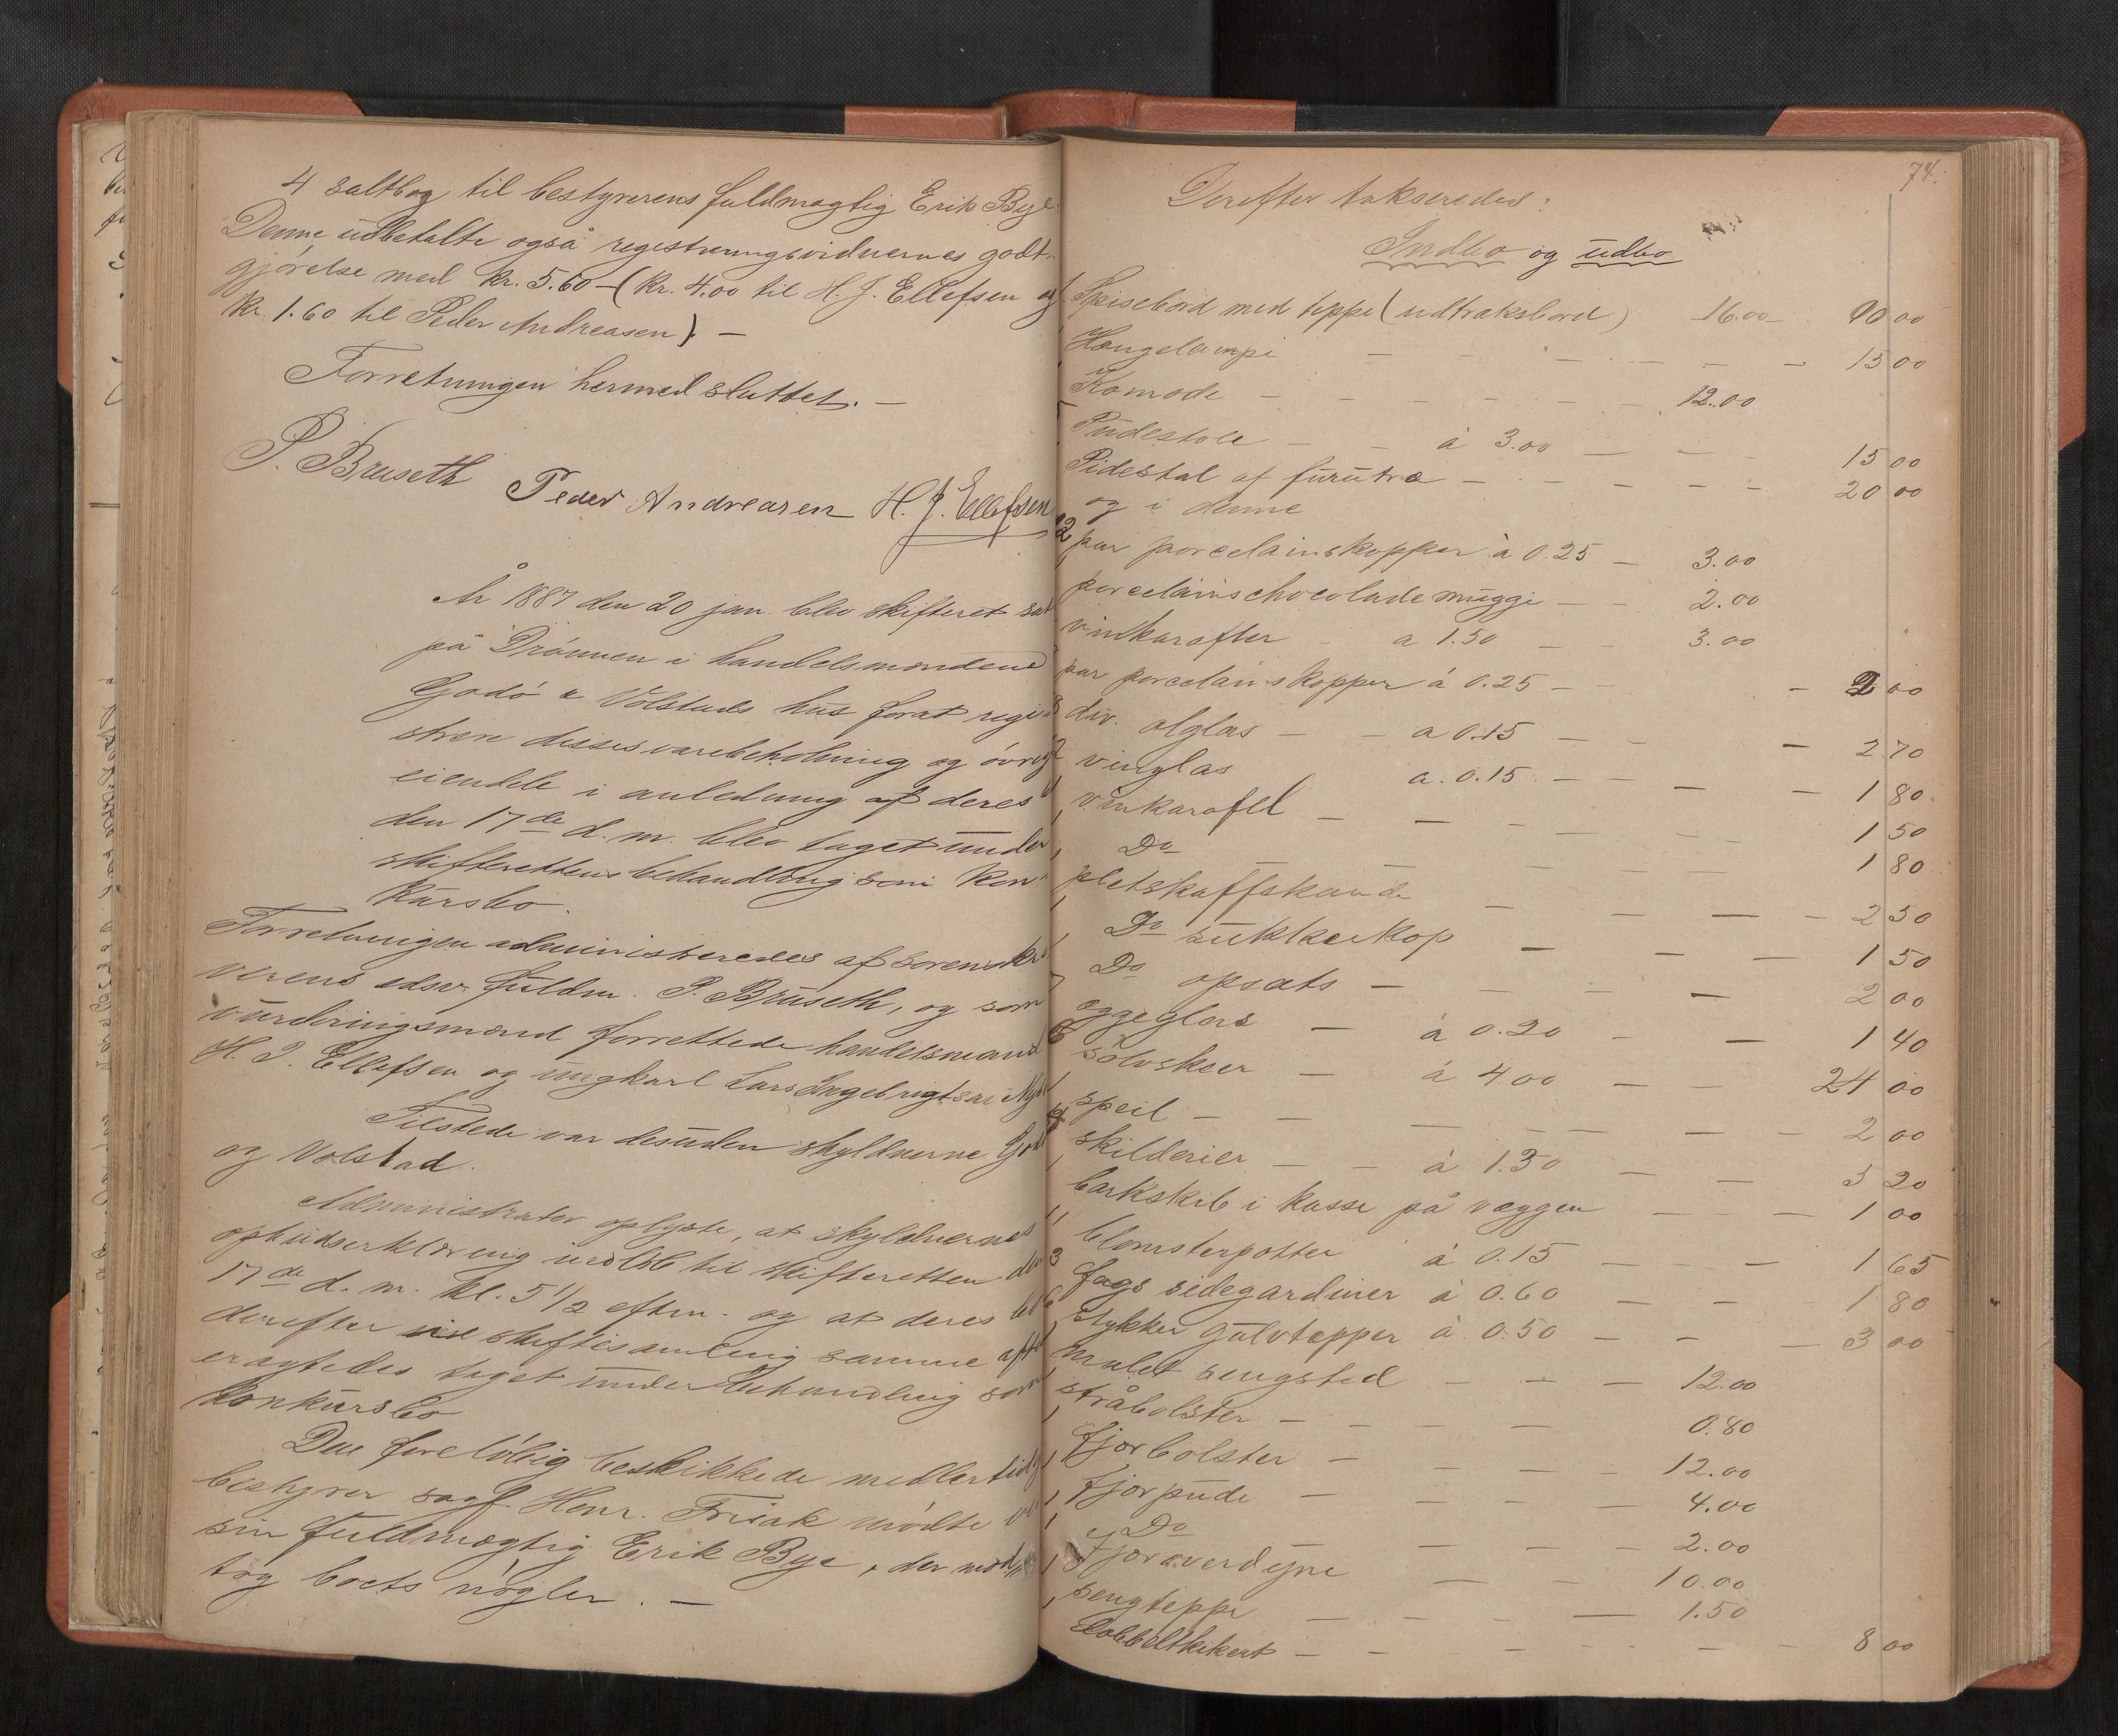 4 saltbog til bestyrerens fuldmægtig Erik Bye.
Denne udbetalte også registreringsvidnernes godt-
gjørelse med kr. 5.60 – (kr. 4.00 til H. J. Ellefsen og
kr. 1.60 til Peder Andreasen). –
Forretningen hermed sluttet. –
P. Bruseth Peder Andreasen H. J. Ellefsen
År 1887 den 20 jan. blev skifteret sat
på Drönnen i handelsmændene
Godö & Volstads hus forat regi
strere disses varebeholdning og övrige
eiendele i anledning af deres
den 17de d. m. blev taget under
skifterettens behandling som kon
kursbo.
Forretningen administreredes af sorenskri
verens edsv. fuldm. P. Bruseth, og som
vurderingsmænd forrettede handelsmand
H. J. Ellefsen og ungkarl Lars Ingebrigtsen
Tilstede var desuden skyldnerne
og Volstad.
Administrator oplyste, at skyldnernes
opbudserklæring indlöb til skifteretten den
17de d. m. kl. 5 1/2 eftm. og at deres bo
derefter ved skiftesamling samme aften
eragtedes taget under behandling som
konkursbo
Den foreløbig beskikkede midlertidige
bestyrer sagf. Henr. Frisak mödte ved
sin fuldmægtig Erik Bye, der
tog boets nögler. –
74.
Derefter takseredes:
Indbo og udbo
1 Spisebord med teppe (udtræksbord) 16.00 10 00
1 Hængelampe – – – – – – 15 00
1 Komode – – – – – – 12.00
5 Pudestole – – à 3.00 – – – 15 00
Pidestal af furutræ – – – – – – 20 00
og i denne
12 par porcelainskopper à 0.25 – 3.00
1 porcelainschocolademugge – – 2.00
vinkarafler – a 1.50 – – 3.00
par porcelainskopper á 0.25 – – 2 00
div. ølglas – – a 0.15 – – – 2 70
vinglas a. 0.15 – – – – 1 80
1 vinkarafel – – – – – 1 50
1 Do – – – – – 1 80
1 pletskaffekande – – – – 2 50
1 Do sukkerkop – – – 1 50
1 Do opsats – – – – 2 00
7 æggeglas – à 0.20 – – 1 40
6 sölvskeer – á 4 00 – – 24 00
1 speil – – – – – – 2 00
4 skilderier – – à 1.30 – – 5 20
1 barkskib i kasse på væggen – – – 1 00
11 blomsterpotter á 0.15 – – – 1 65
3 fags sidegardiner à 0.60 – – – 1 80
6 stykker gulvtepper à 0.50 – – – 3 00
1 malet sengsted – – – 12.00
1 stråbolster – – – – 0.80
1 fjørbolster – – – – 12.00
1 fjørpude – – – – 4.00
1 Do – – – 2.00
1 fjøroverdyne – – – 10.00
1 sengteppe – – – – 1.50
1 dobbeltkikert – – – – – – 8 00